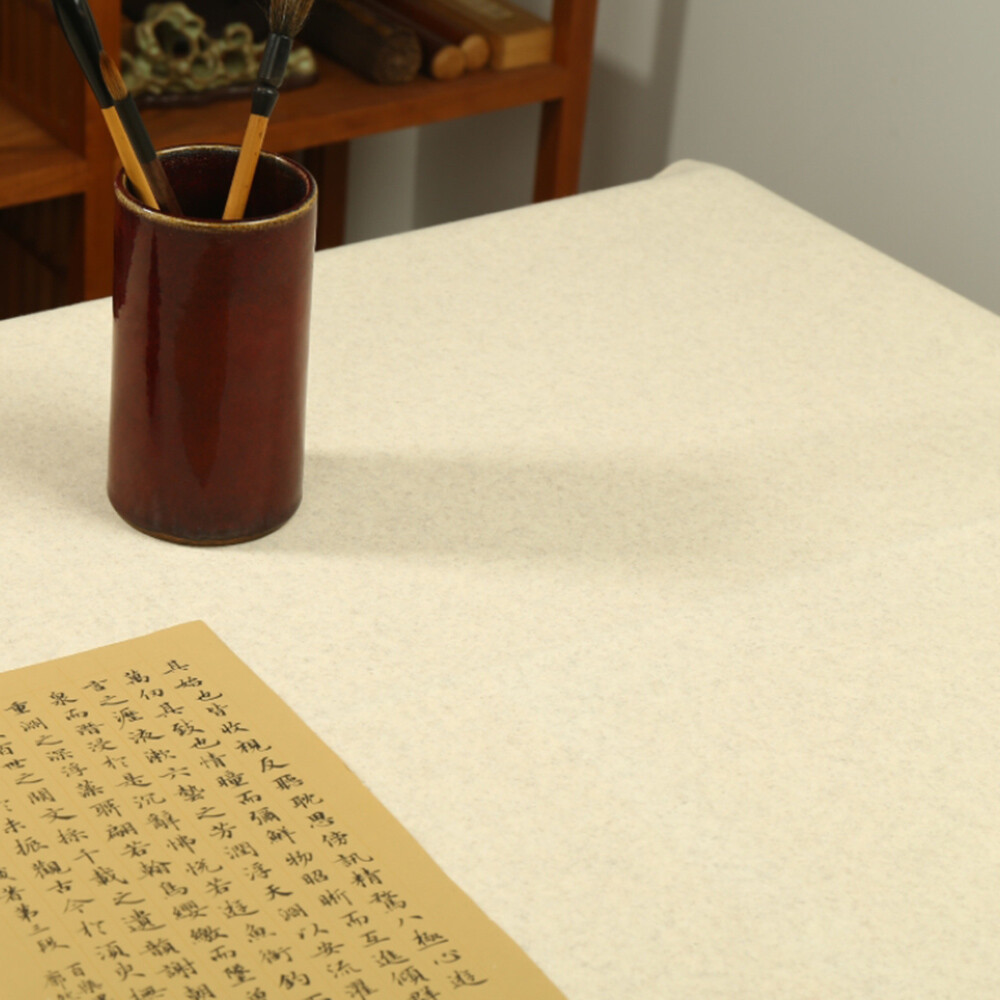 其始也皆收視反聽耽思傍訊精騖八極心遊
萬仞其致也情曈而彌鮮物昭晰而互進傾群
言之瀝液漱六藝之芳潤浮天淵以安流濯
泉而潛浸於是沉辭怫悅若遊魚銜鉤而
重淵之深浮藻聯翩若翰鳥纓繳而墜曾
百世之闕文採千載之遺韻謝朝
於未振觀古今於須臾撫
著第三段